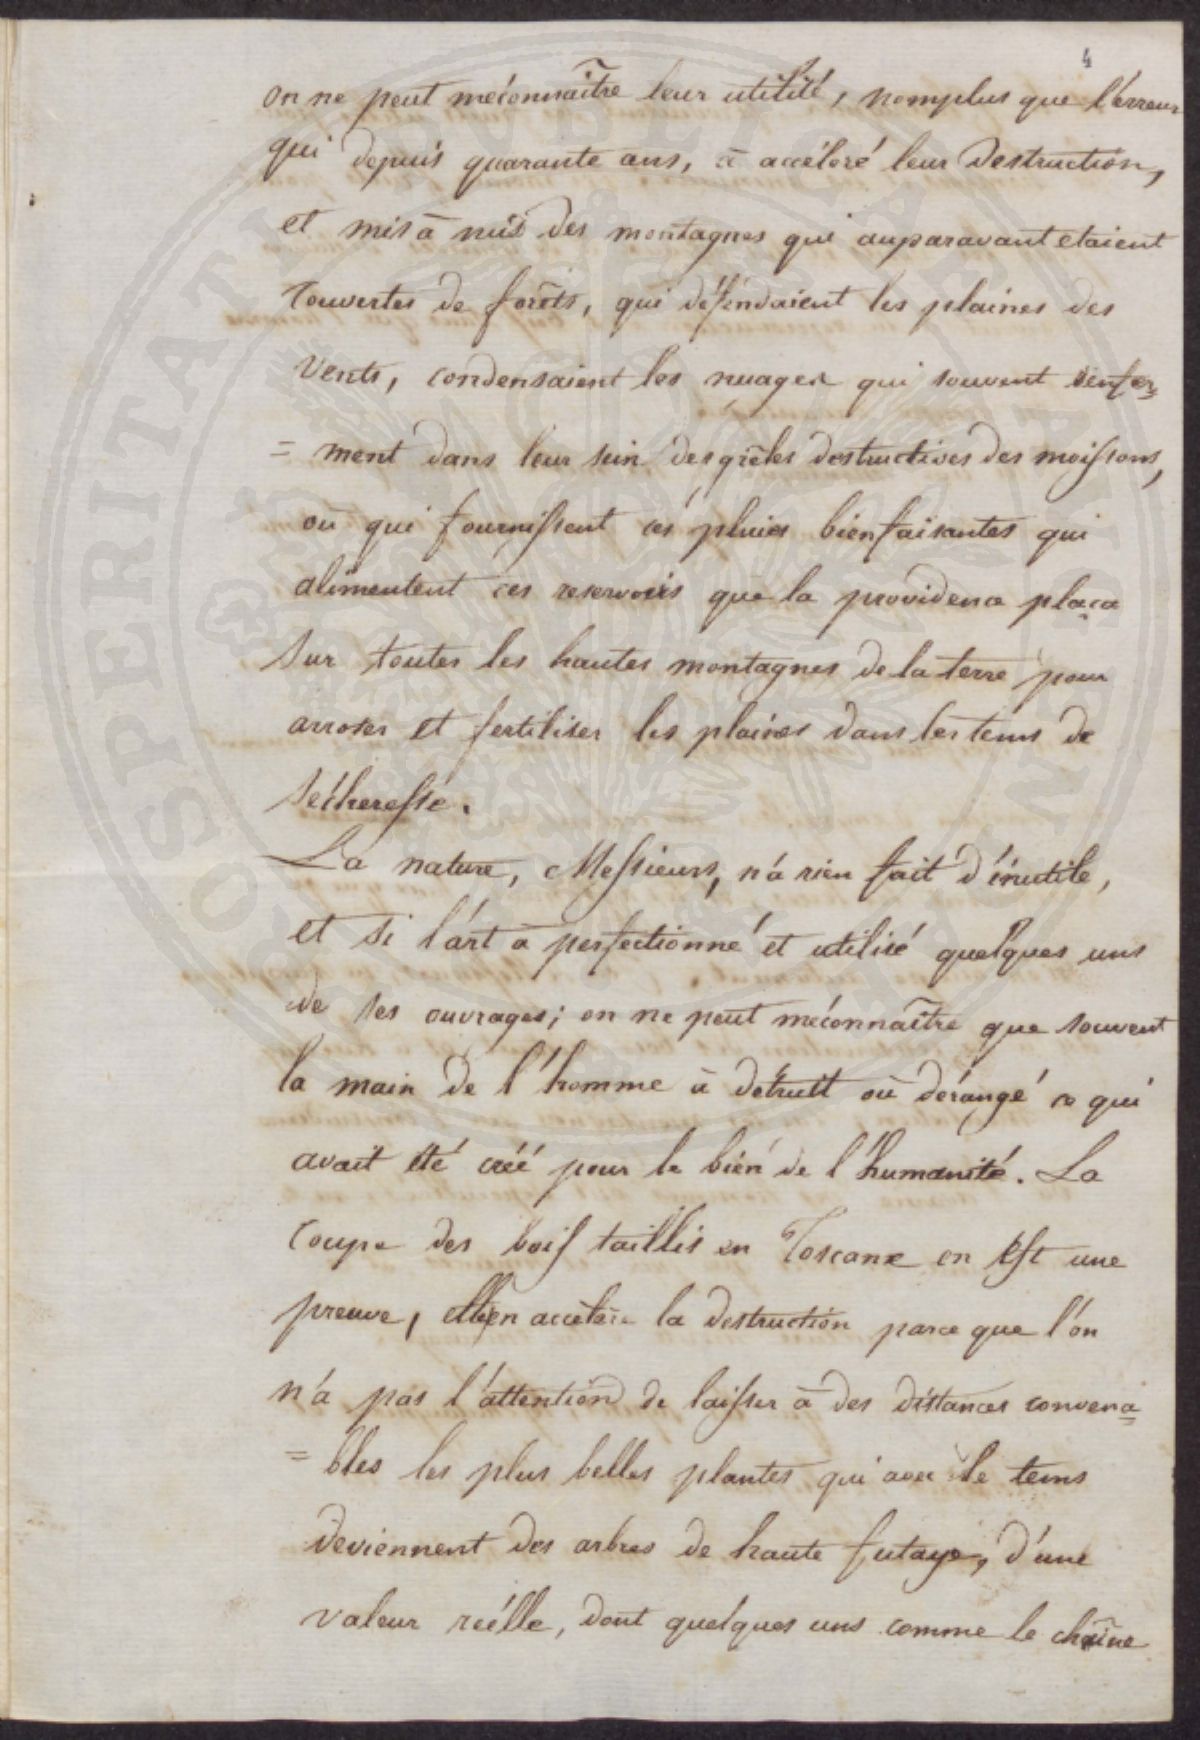 4
on ne peut méconnaître leur utilité, nomplus que l'érreur
qui depuis quarante ans, à accéleré leur Destruction,
et mis à nud des montagnes qui auparavant etaient
Couvertes de forêts, qui défendaient les plaines des
vents, condensaient les nuages qui souvent renfer=
=ment dans leur sein des grêles destructives des moissons,
où qui fournissent ces pluies bienfaisantes qui
alimentent ces reservoirs que la providence plaça
Sur toutes les hautes montagnes de la terre pour
arroser et fertiliser les plaines dans les tems de
Sécheresse.
La nature, Messieurs, n'a rien fait d'inutile,
et si l'art à perfectionné et utilisé quelques uns
de ses ouvrages; on ne peut méconnaître que souvent
la main de l'homme à détruit où dérangé ce qui
avait été créé pour le bien de l'humanité. La
Coupe des bois taillis en Toscane en Est une
preuve, elle en accélère la destruction parce que l'on
n'a pas l'attention de laisser à des distances convena=
=bles les plus belles plantes qui avec le tems
deviennent des arbres de haute futaye, d'une
valeur réélle, dont quelques uns comme le chaîne
PROSPERITATI PUBLICAE